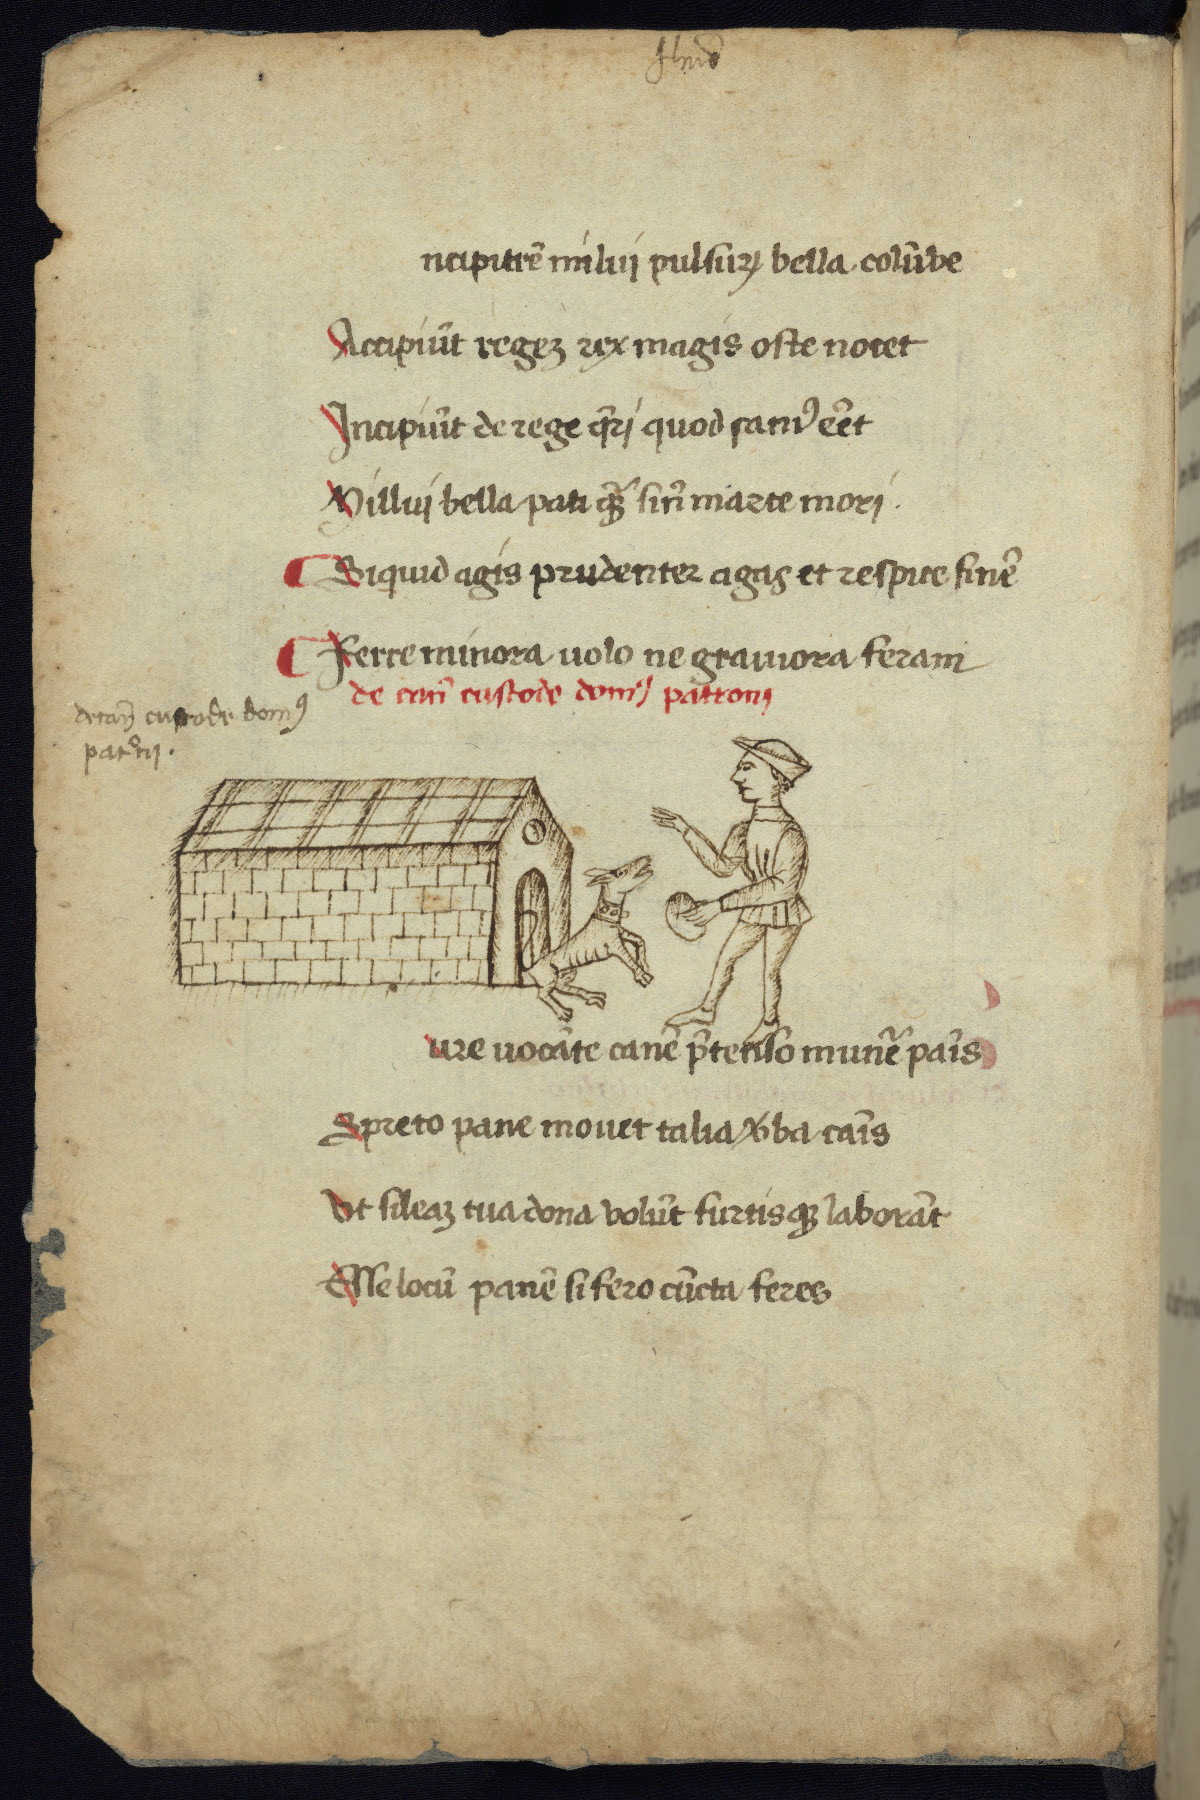 ncipitrē milui pulsurꝫ bella colūbe
Accipiūt regeꝫ rex magis oste nocet
Incipiūt de rege q̄ri quod saniꝰ eēt
Millui bella pati qꝫ̄ sin̄ marte mori.
Siquid agis prudenter agas et respice finē
Ferre minora uolo ne grauiora feram
de can̄ custode domꝰ patroni
de can̄ custode domꝰ
patͦni.
ure uocāte canē p̄tenso munē pāis
Spreto pane mouet talia v̄ba cāis
Vt sileaꝫ tua dona volūt furtisqꝫ laborāt
Esse locū panē si fero cūcta feres